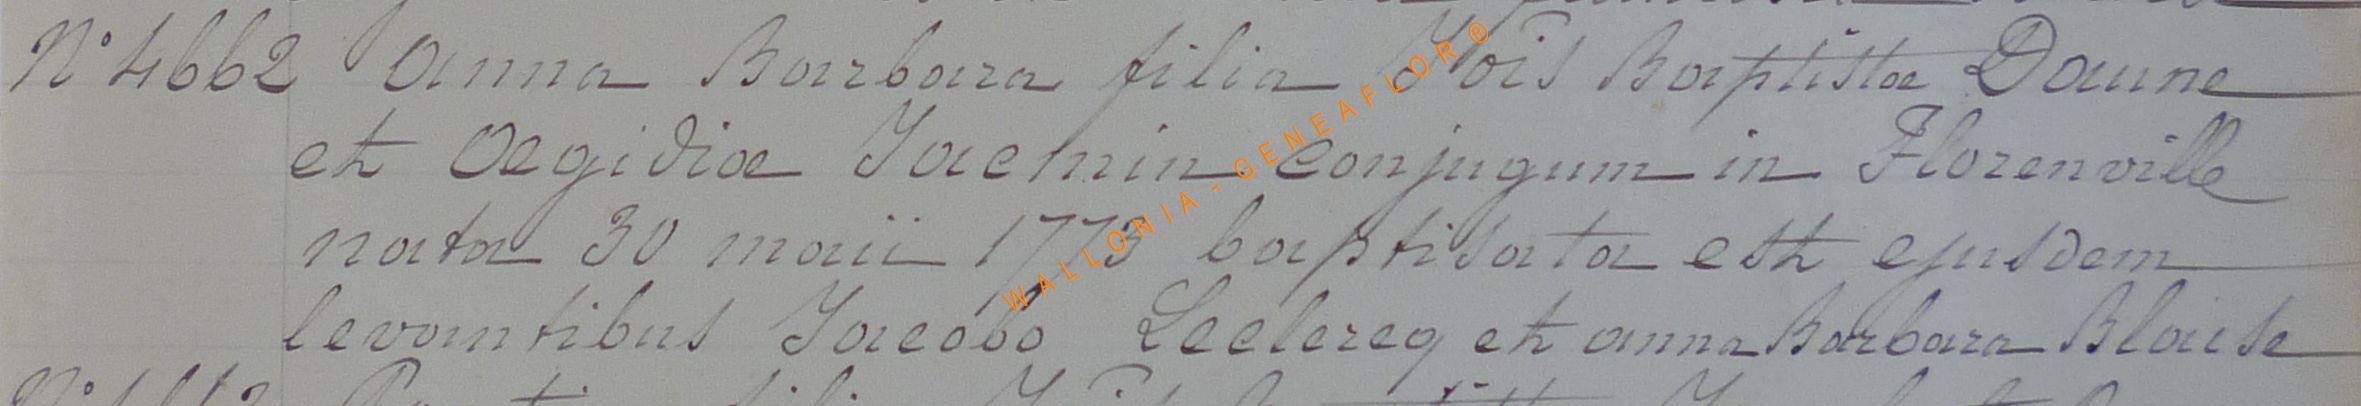 N° 4662 Anna Barbara filia Jois Baptistæ Daune
et Oegidiæ Jacmin conjugum in Florenville
nata 30 maii 1773 baptisata est ejusdem
levantibus Jacobo Leclercq et anna Barbara Blaise
WALLONIA - GENEAFLOR ®